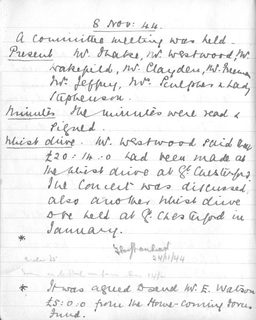 8 Nov: 44.
A committee meeting was held.
Present Mr. Thake, Mr. Westwood, Mr.
Wakefield, Mr. Clayden, Mr.
Mr. Jeffrey, Mrs. & Lady
Stephenson.
Minutes The minutes were read &
signed.
Whist drive. Mr. Westwood said that
£20:14:0 had been made at
the whist drive at Gt. Chesterford.
The Concert was discussed,
also another whist drive
to be held at Gt. Chesterford in
January.
24/11/44
* It was agreed to send Mr. E. Watson
£5:0:0 from the Home-coming Forces
Fund.